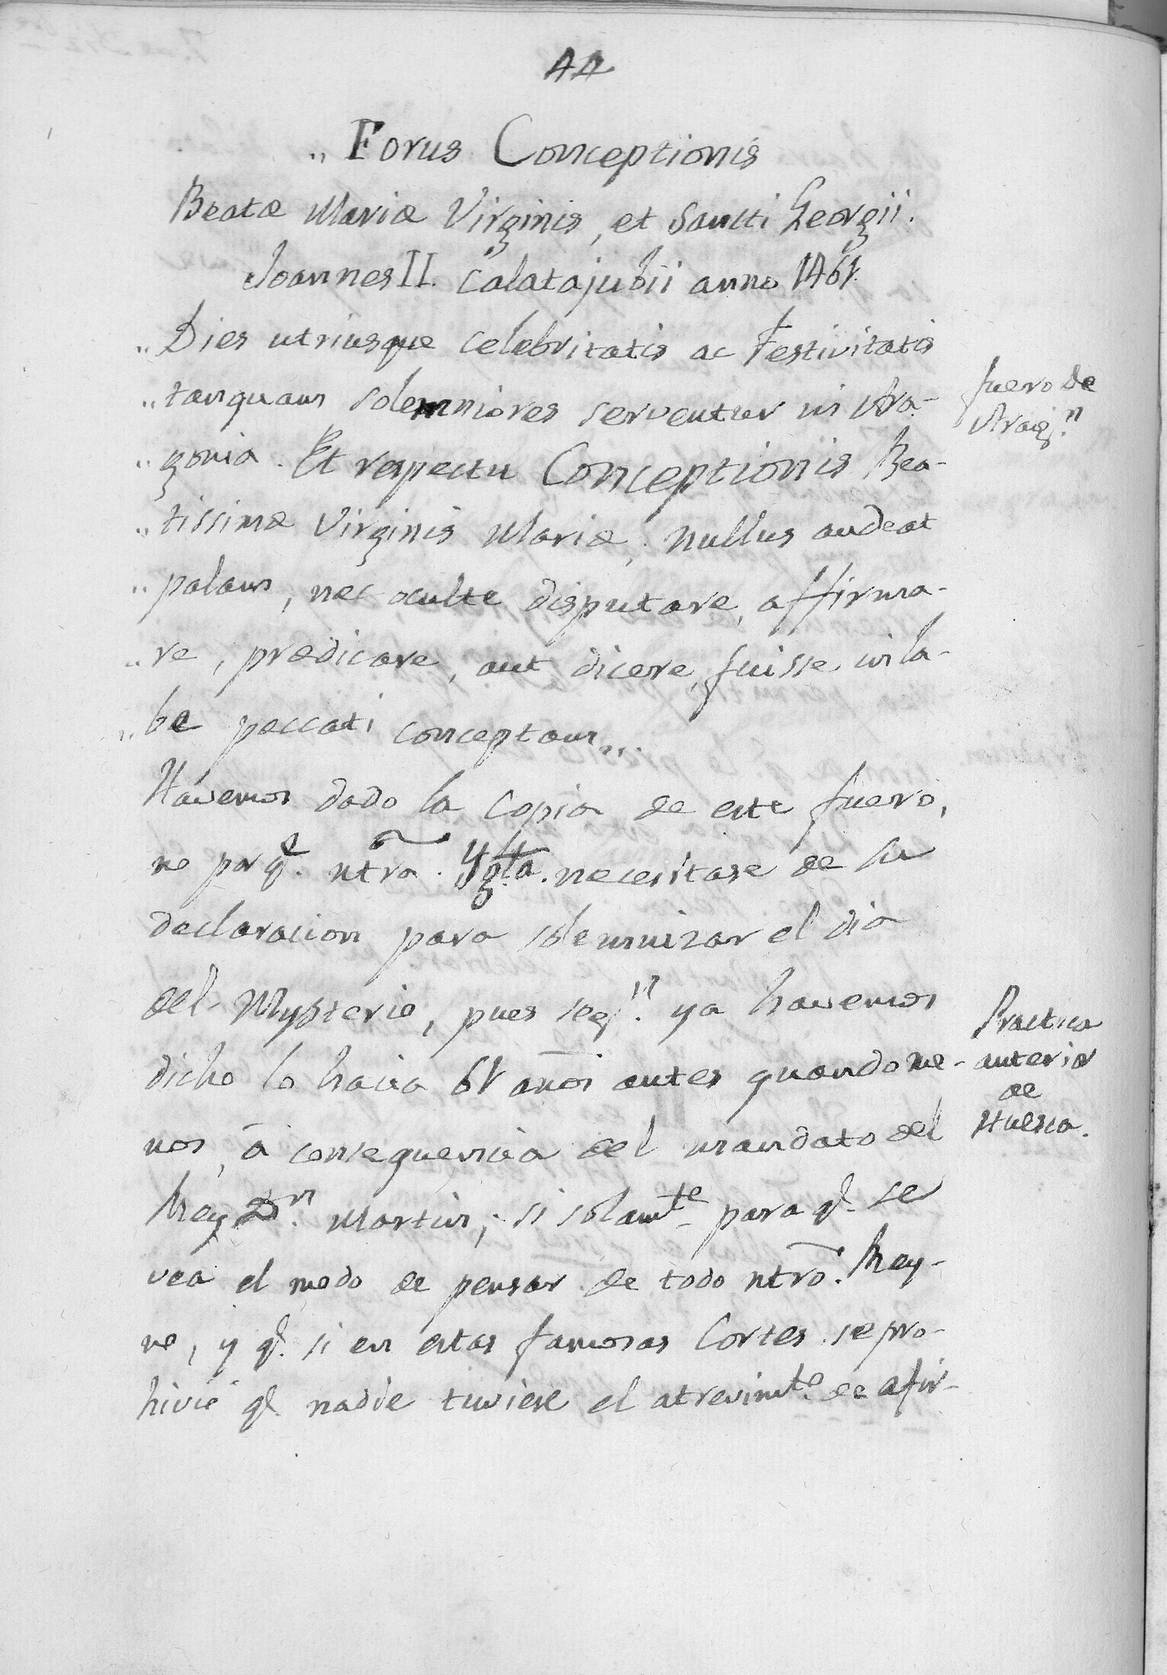 44
„ Forus Conceptionis
Beatæ Mariæ Virginis, et Sancti Georgii.
Joannes II. Calatajubii anno 1461.
„ Dies utriusque celebritatis ac Festivitatis
„ tanquam solemniores serventur in Ara-
„ gonia. Et respectu Conceptionis Bea-
„ tissimæ Virginis Mariæ, nullus audeat
„ palam, nec oculte disputare, affirma-
„ re, prædicare, aut dicere, fuisse in la-
„ be peccati conceptam„.
fuero de
Arag.n
Havemos dado la copia de este fuero,
no porq.e ntra. Ygla. necesitase de su
declaracion para solemnizar el dia
del Mysterio, pues seg.n ya havemos
dicho lo hacia 61 años antes quando me-
nos, á consequencia del mandato del
Rey Dn. Martin, si solamte para q.e se
vea el modo de pensar de todo ntro. Rey-
no, y q.e si en estas famosas Cortes se pro-
hivió q.e nadie tuviese el atrevimto. de afir-
Practica
anterior
de
Huesca.